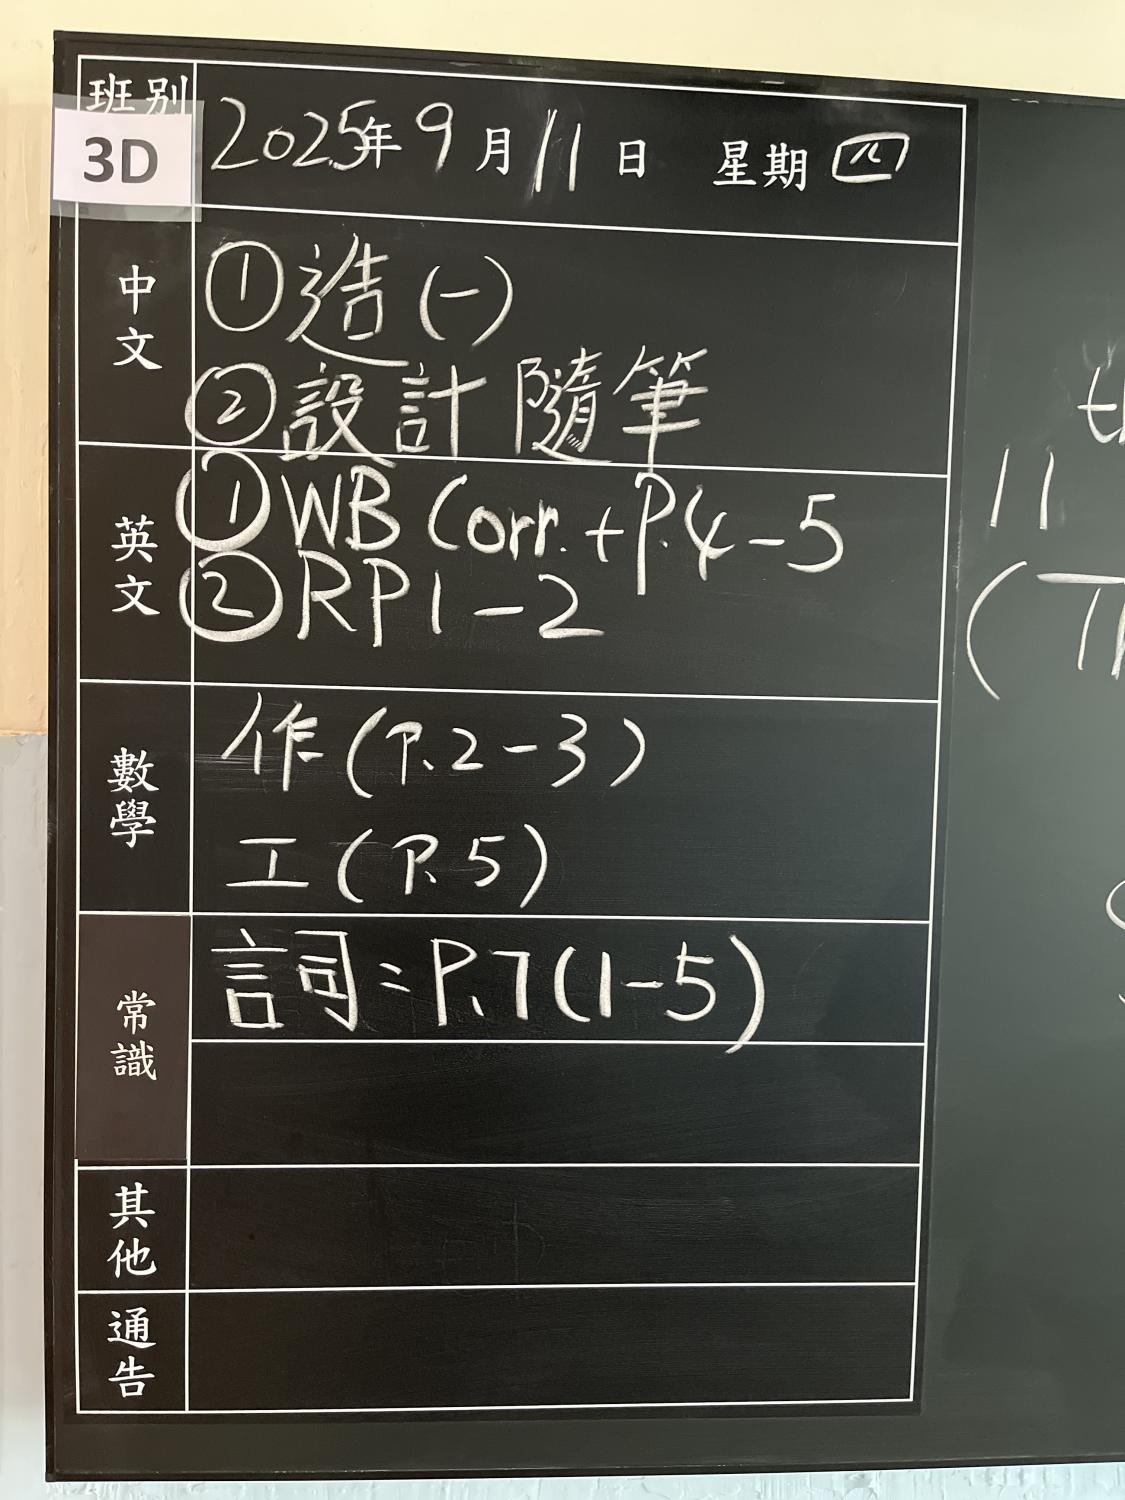 班別
3D
2025年9月11日 星期四
中文
①造(一)
②設計隨筆
英文
①WB Corr. + P.4-5
②RP1-2
數學
作(P.2-3)
工(P.5)
常識
詞: P.7(1-5)
其他
通告
11